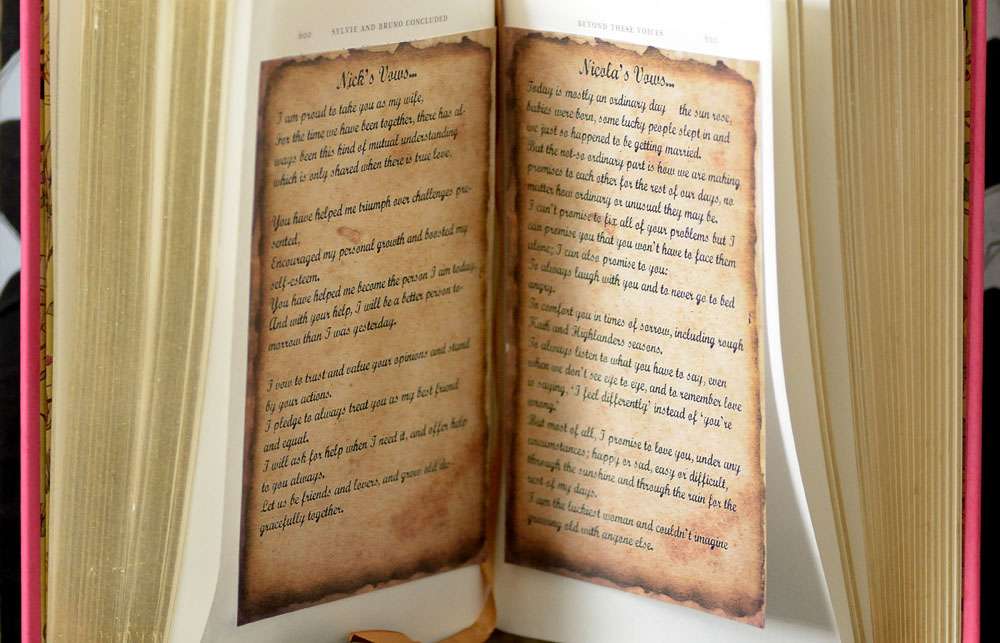 SYLVIE AND BRUNO CONCLUDED
Nick's Vows...
I am proud to take you as my wife,
For the time we have been together, there has al-
ways been this kind of mutual understanding
which is only shared when there is true love.
You have helped me triumph over challenges pre-
sented,
Encouraged my personal growth and boosted my
self-esteem.
You have helped me become the person I am today,
And with your help, I will be a better person to-
morrow than I was yesterday.
I vow to trust and value your opinions and stand
by your actions.
I pledge to always treat you as my best friend
and equal.
I will ask for help when I need it, and offer help
to you always,
Let us be friends and lovers, and grow old dis-
gracefully together.
BEYOND THESE VOICES
Nicola's Vows...
Today is mostly an ordinary day the sun rose,
babies were born, some lucky people slept in and
we just so happened to be getting married.
But the not-so ordinary part is how we are making
promises to each other for the rest of our days, no
matter how ordinary or unusual they may be.
I can't promise to fix all of your problems but I
can promise you that you won't have to face them
alone; I can also promise to you:
To always laugh with you and to never go to bed
angry.
To comfort you in times of sorrow, including rough
Kash and Highlanders seasons.
To always listen to what you have to say, even
when we don't see eye to eye, and to remember love
is saying, 'I feel differently' instead of 'you're
wrong.'
But most of all, I promise to love you, under any
circumstances; happy or sad, easy or difficult,
through the sunshine and through the rain for the
rest of my days.
I am the luckiest woman and couldn't imagine
growing old with anyone else.